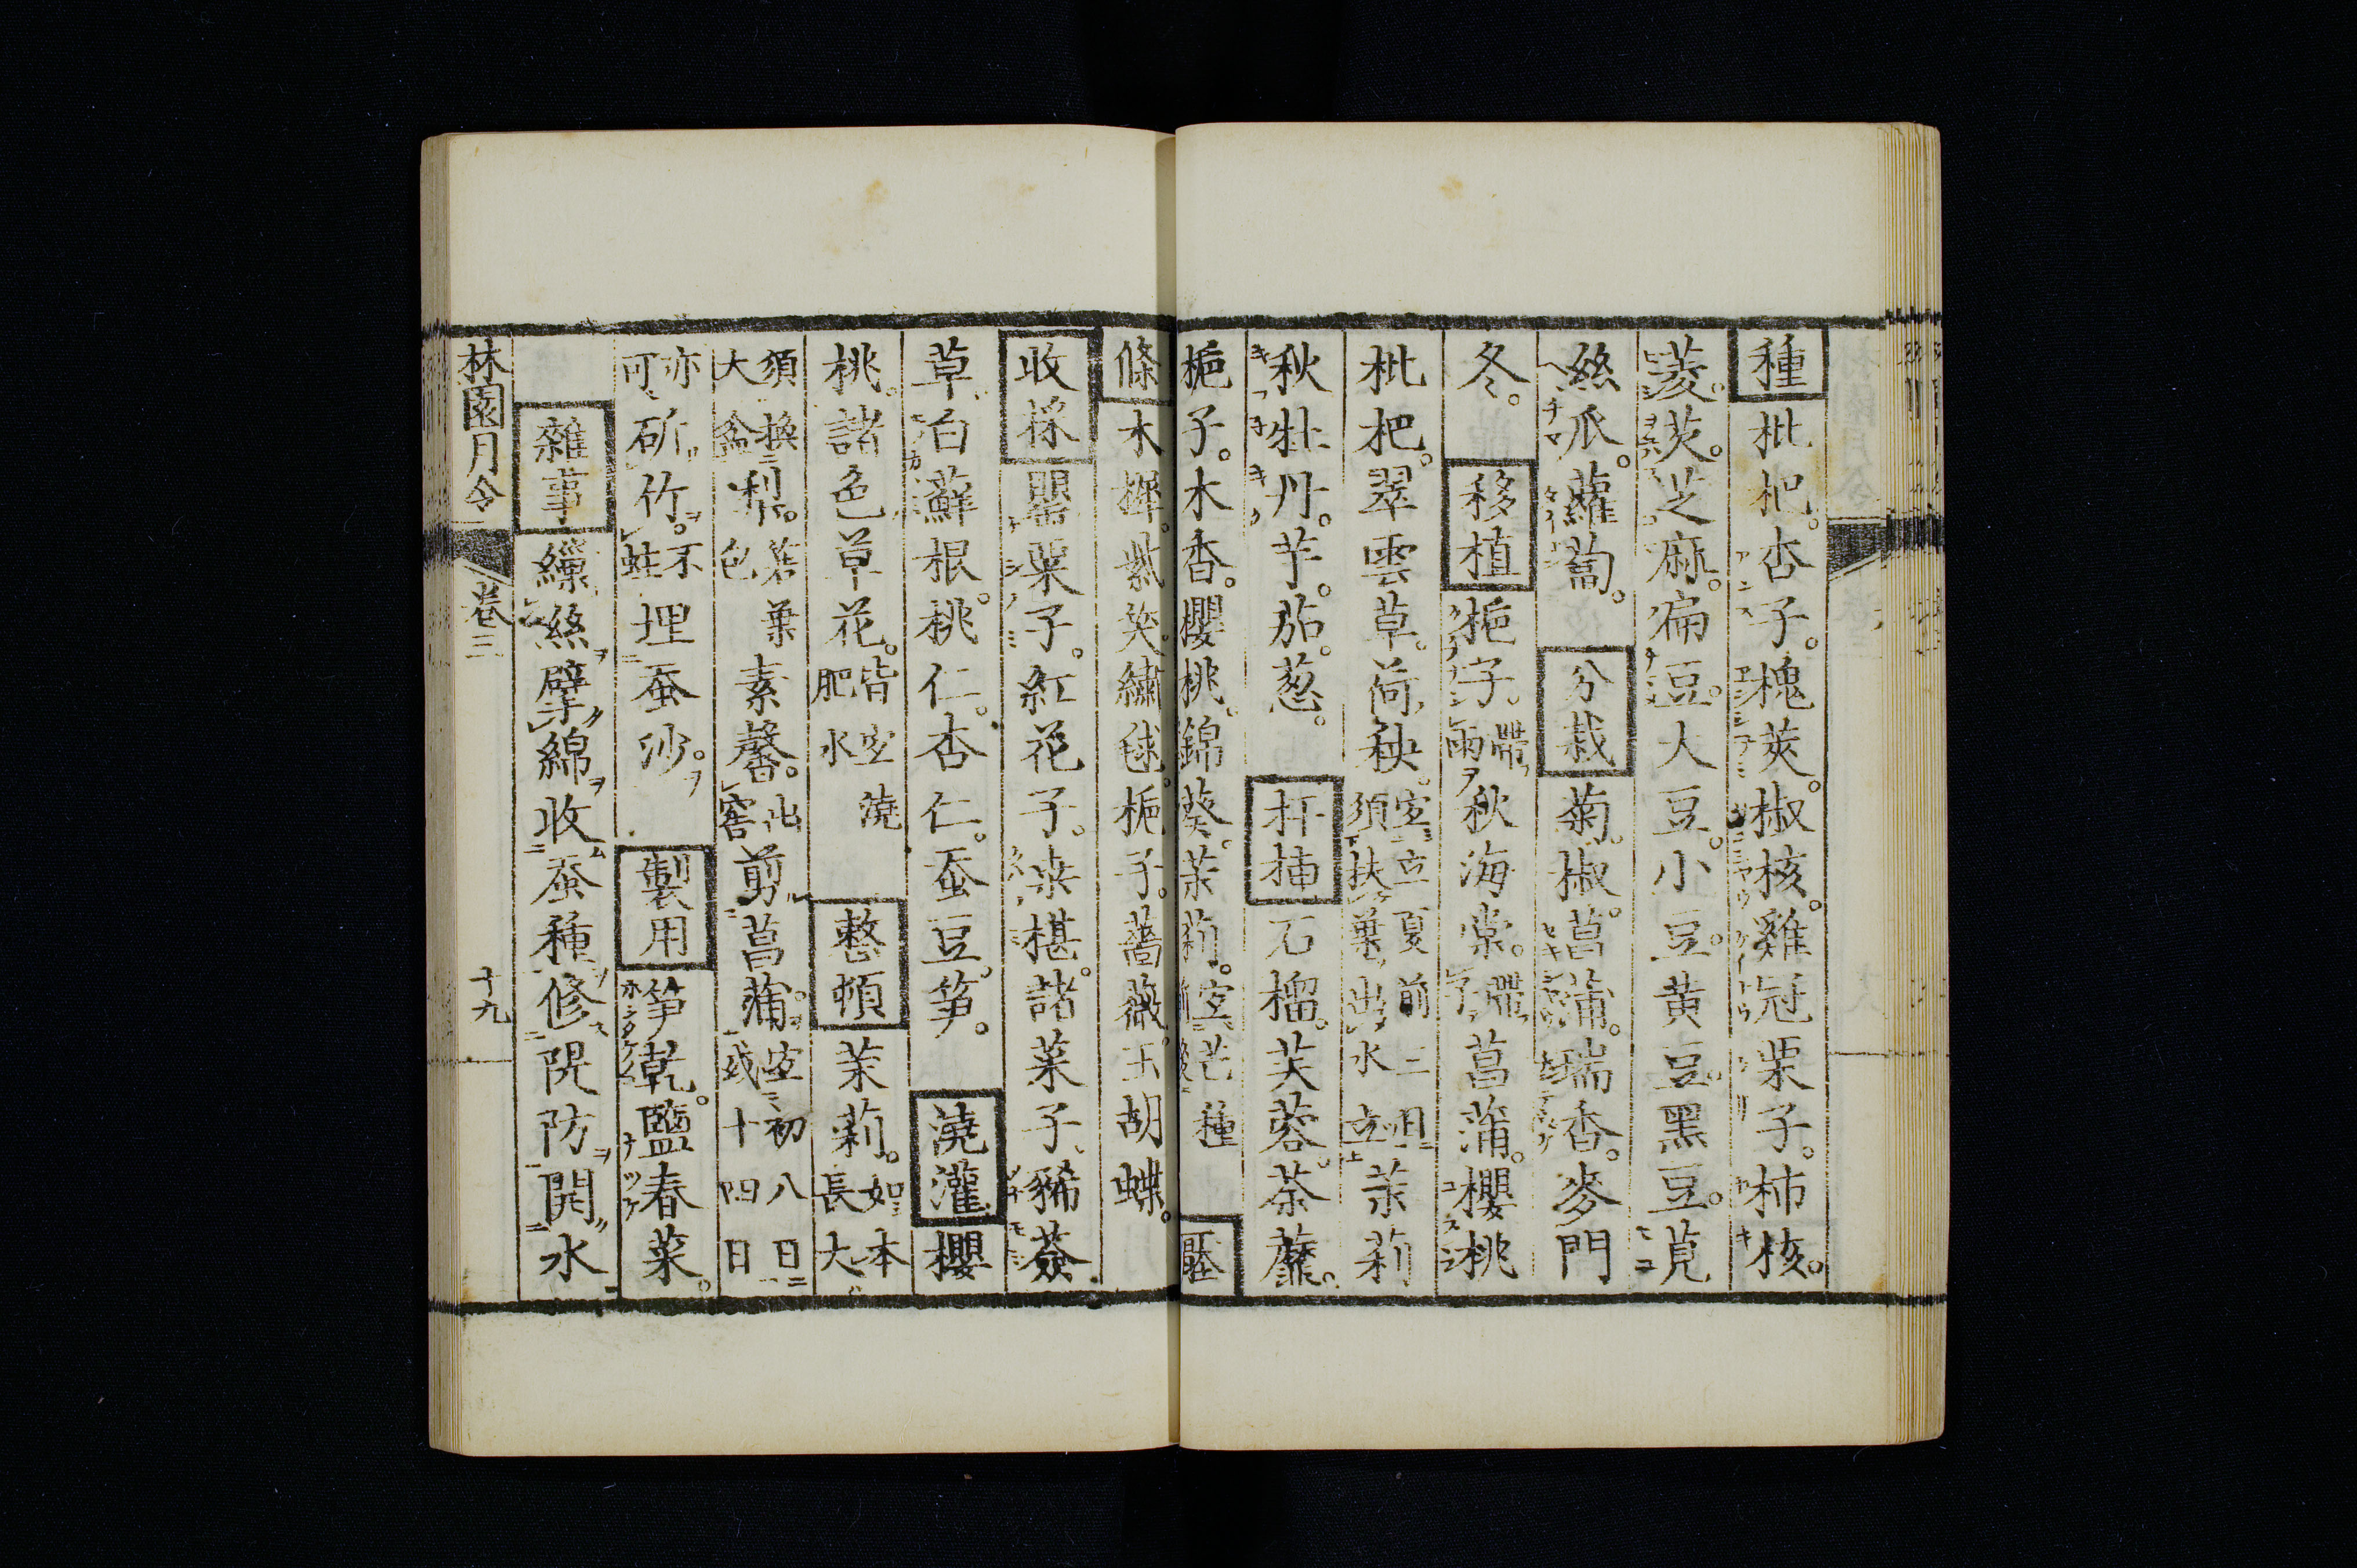 種枇杷。杏子。槐莢。椒核。雞冠栗子。柿核。
菱。芡。芝麻。扁豆。大豆。小豆。黄豆。黑豆。莧
絲瓜。蘿蔔。分栽菊。椒。菖蒲。瑞香。麥門
冬。移植梔子。帶雨秋海棠。帶子菖蒲。櫻桃
枇杷。翠雲草。荷秧。宜立夏前三日須扶葉出水立茉莉
秋牡丹。芋。茄。葱。扦插石榴。芙蓉。荼蘼。
梔子。木香。櫻桃。錦葵。茉莉。宜芒種壓
條木樨。紫笑。繡毬。梔子。薔薇。玉胡蝶。
收採罌粟子。紅花子。桒椹。諸菜子。豨薟
草。白蘚根。桃仁。杏仁。蚕豆。笋。澆灌櫻
桃。諸色草花。皆宜澆肥水整頓茉莉。如本長大
須換大盆梨。若葉色素馨。出窖剪菖蒲。宜初八日或十四日
亦可斫竹。不蛀埋蚕沙。製用笋乾。鹽春菜。
雜事繅絲擘綿收蚕種修隄防開水
林園月令
卷三
十九